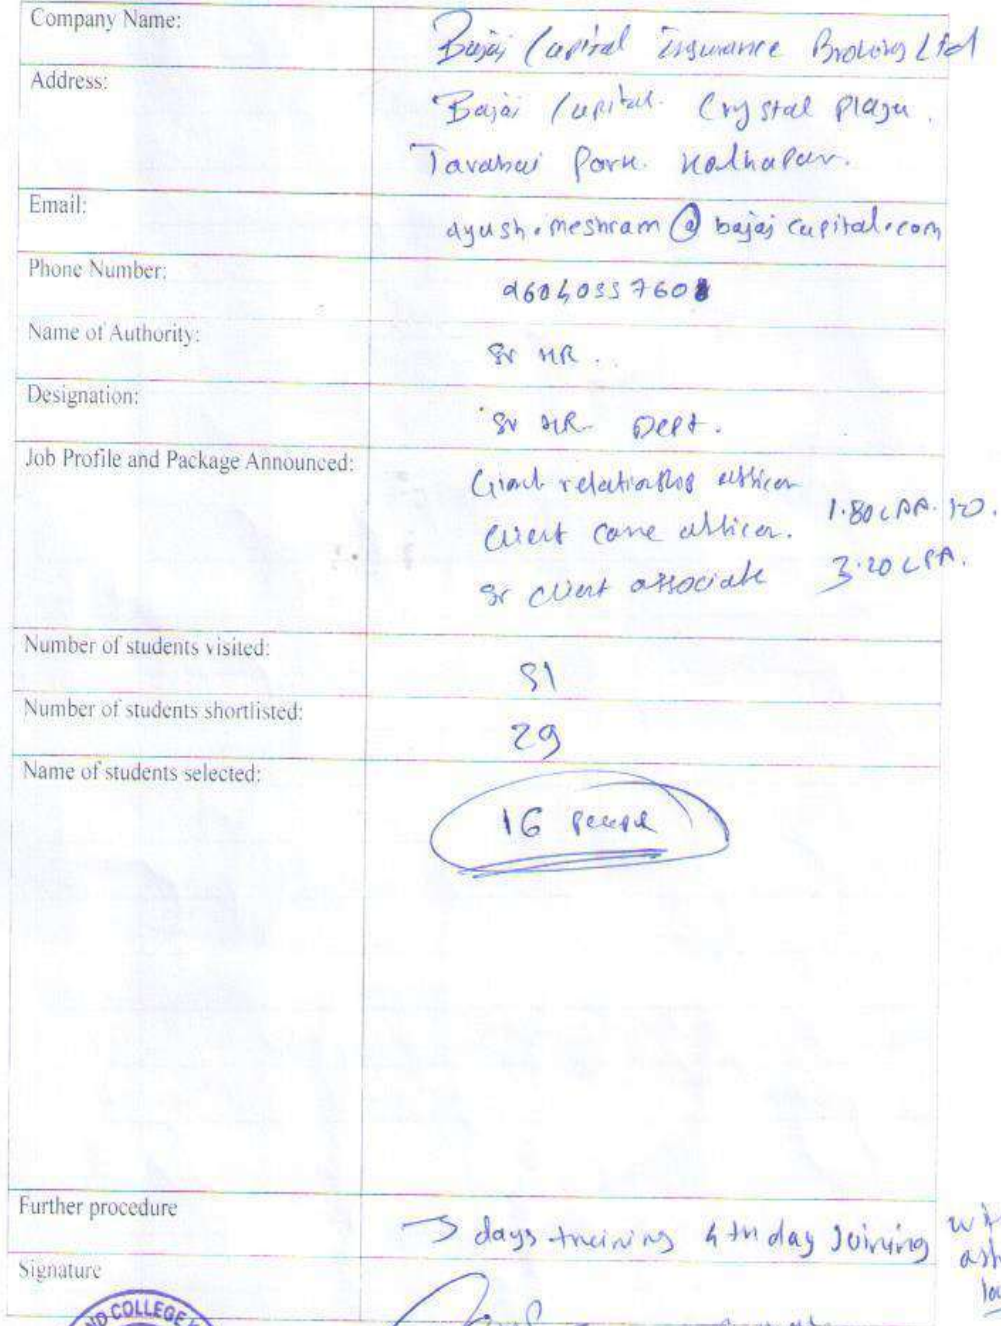 Company Name: Bajaj Capital Insurance Broking Ltd
Address: Bajaj Capital. Crystal Plaza.
Tarabai Park. Kolhapur.
Email: ayush.meshram@bajajcapital.com
Phone Number:
Name of Authority: Sr HR..
Designation: Sr HR Dept.
Job Profile and Package Announced: Client relationship officer
Client care officer. 1.80 LPA.
Sr client associate 3.20 LPA.
Number of students visited:
Number of students shortlisted: 29
Name of students selected: 16 people
Further procedure 3 days training 4th day Joining
Signature
ND COLLEGE